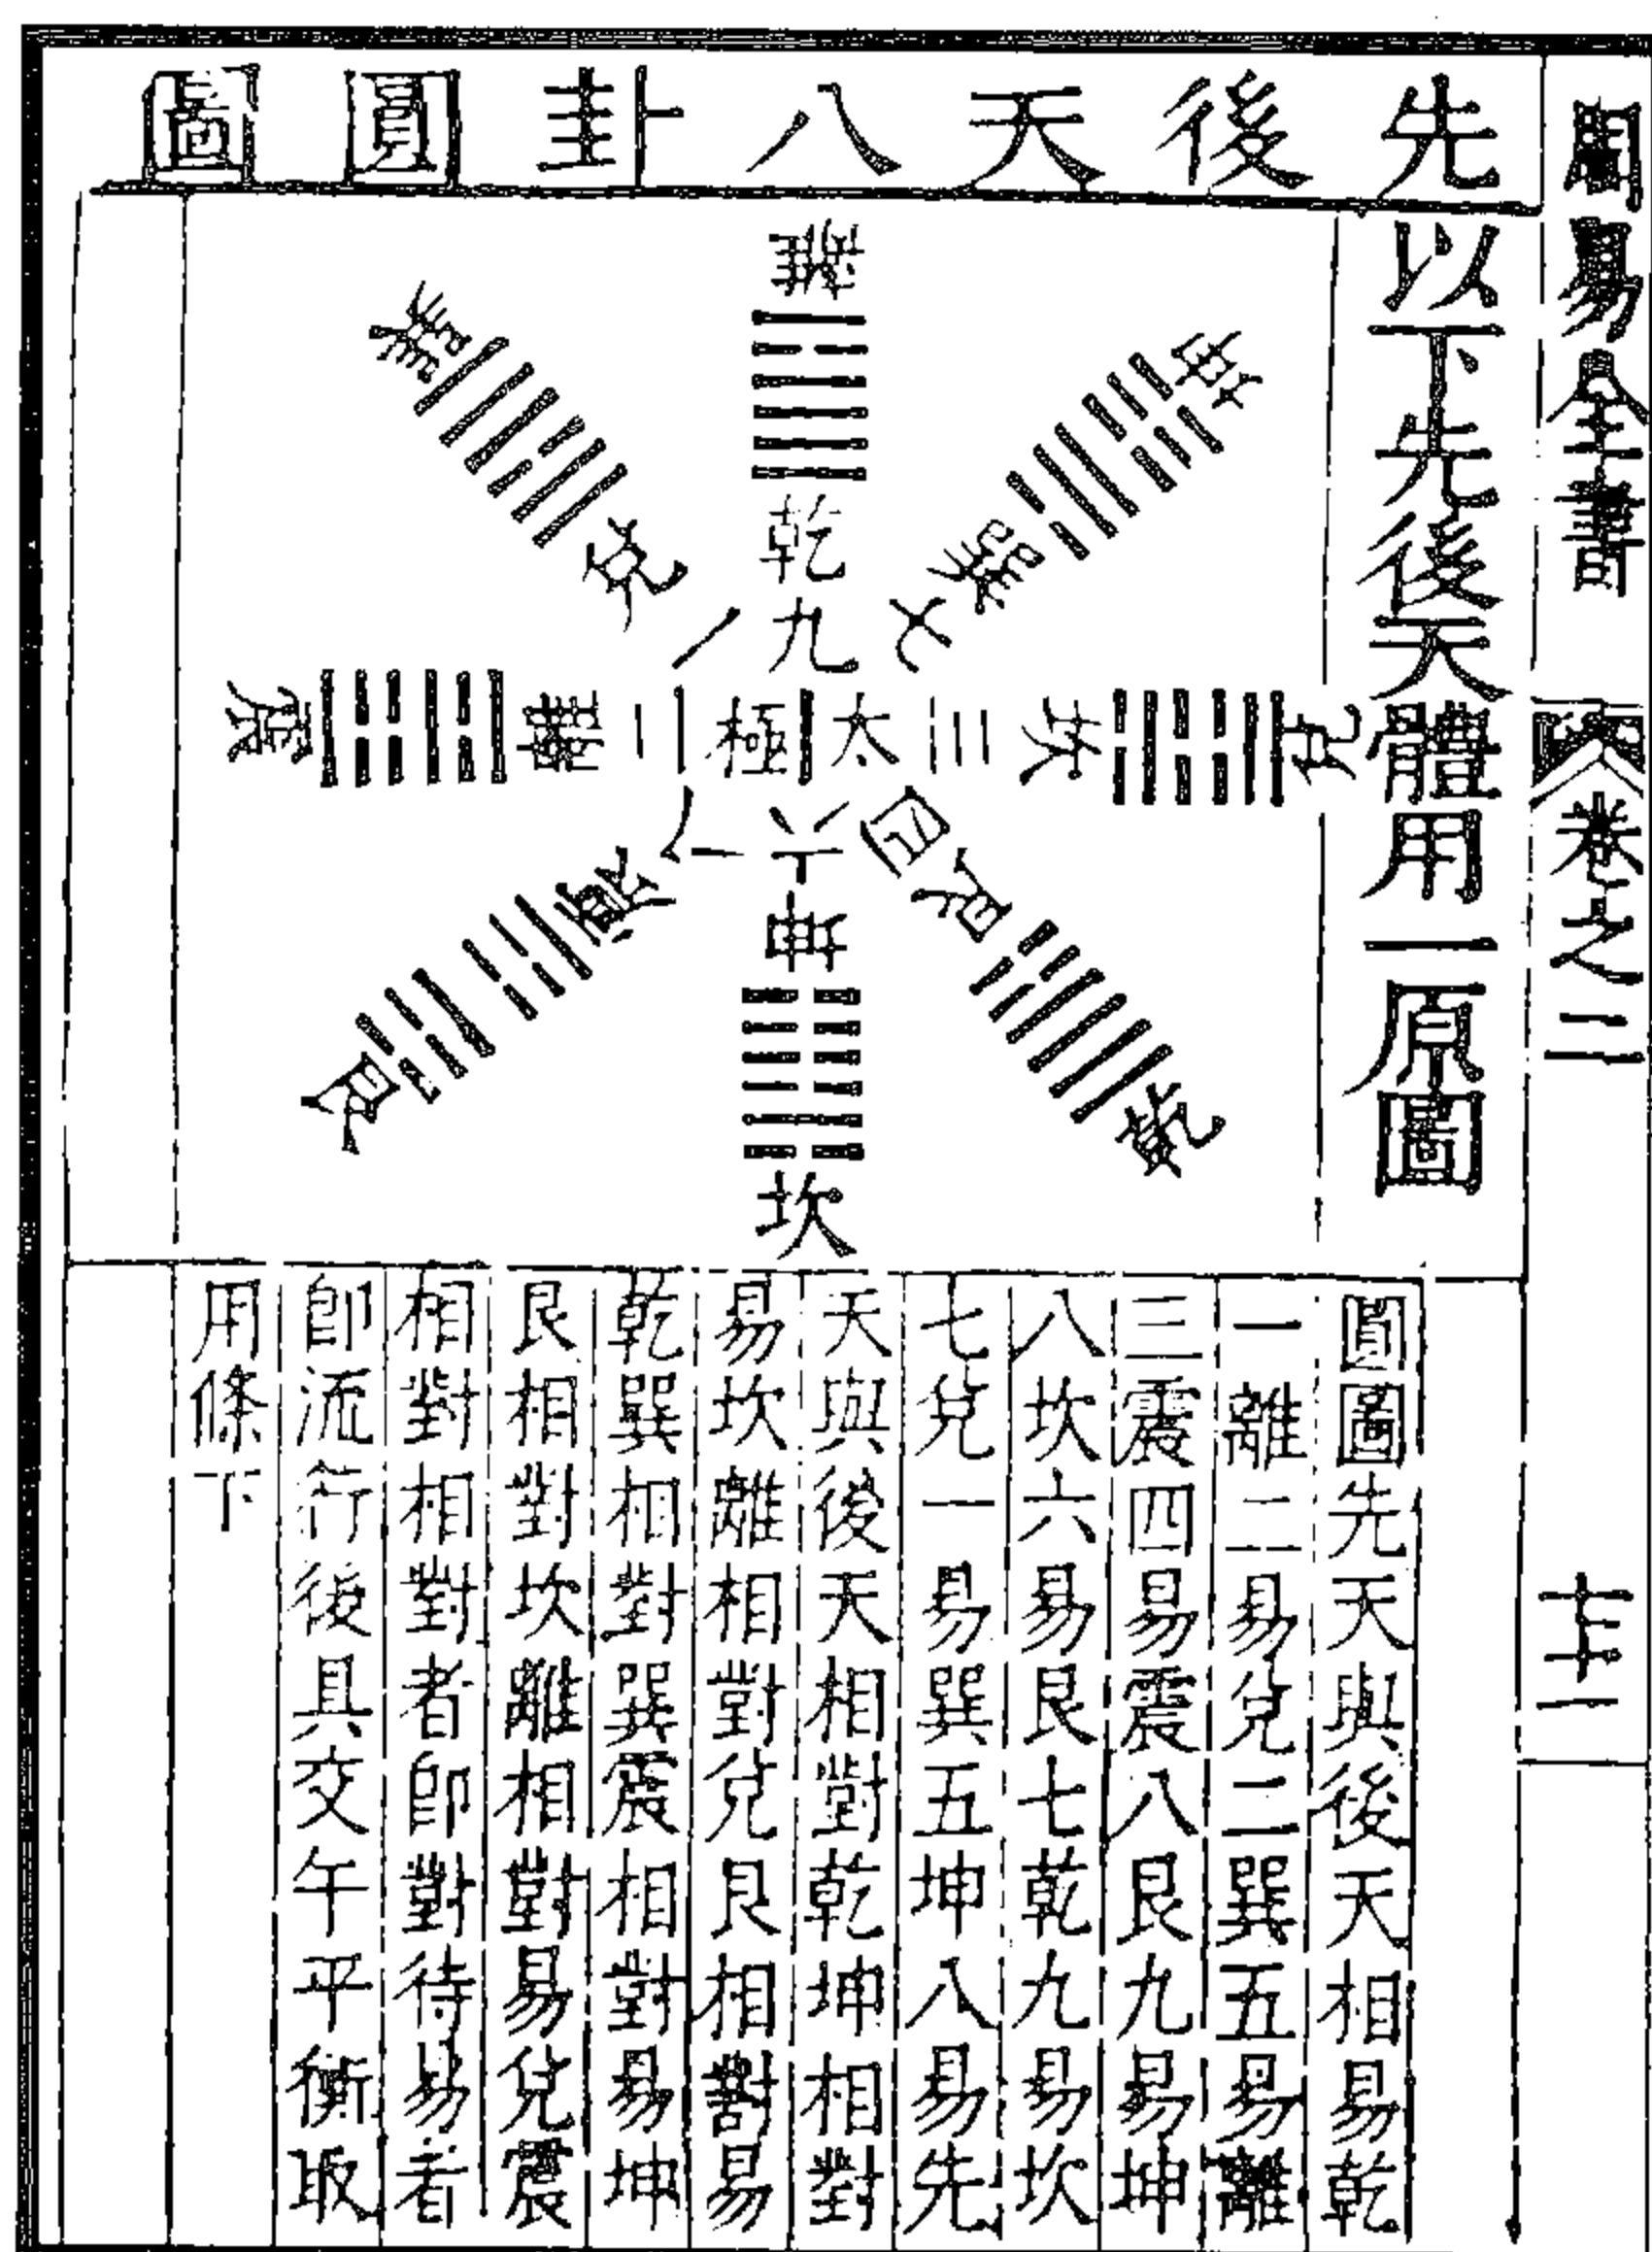 周易全書 卷之二
先後天八卦圓圖
以下先後天體用一原圖
離 乾 九
坤 巽 七
兌 坎 三
乾 艮 四
坎 坤 六
艮 震 八
震 離 二
巽 兌 一
太極
圓圖先天與後天相易乾
一離二易兌二巽五易離
三震四易震八艮九易坤
八坎六易艮七乾九易坎
七兌一易巽五坤八易先
天與後天相對乾坤相對
易坎離相對兌艮相對易
乾巽相對巽震相對易坤
艮相對坎離相對易兌震
相對相對者卽對待易者
卽流行後具交午平衡取
用條下